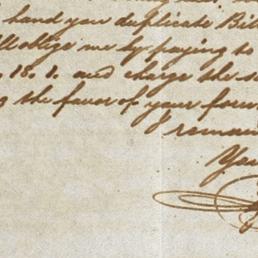 hand you duplicate Bill
oblige me by paying to
18.1. and charge the
the favor of your
I remain
You